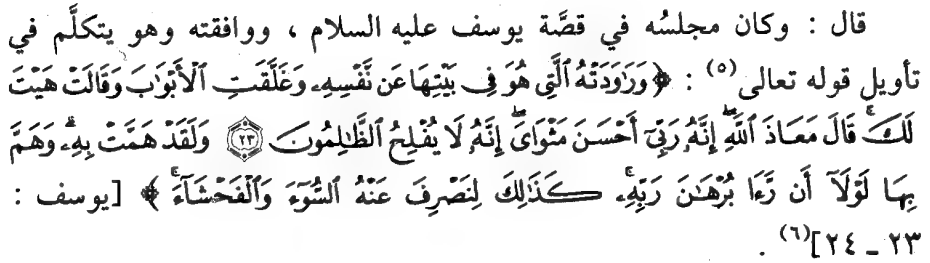 قال : وكان مجلسُه في قصَّة يوسف عليه السلام ، ووافقته وهو يتكلَّم في
تأويل قوله تعالى(٥) : ﴿ وَرَٰوَدَتْهُ ٱلَّتِى هُوَ فِى بَيْتِهَا عَن نَّفْسِهِۦ وَغَلَّقَتِ ٱلْأَبْوَٰبَ وَقَالَتْ هَيْتَ
لَكَۚ قَالَ مَعَاذَ ٱللَّهِۖ إِنَّهُۥ رَبِّىٓ أَحْسَنَ مَثْوَاىَۖ إِنَّهُۥ لَا يُفْلِحُ ٱلظَّٰلِمُونَ ۝٢٣ وَلَقَدْ هَمَّتْ بِهِۦۖ وَهَمَّ
بِهَا لَوْلَآ أَن رَّءَا بُرْهَٰنَ رَبِّهِۦۚ كَذَٰلِكَ لِنَصْرِفَ عَنْهُ ٱلسُّوٓءَ وَٱلْفَحْشَآءَۚ ﴾ [يوسف :
٢٣ ـ ٢٤](٦) .